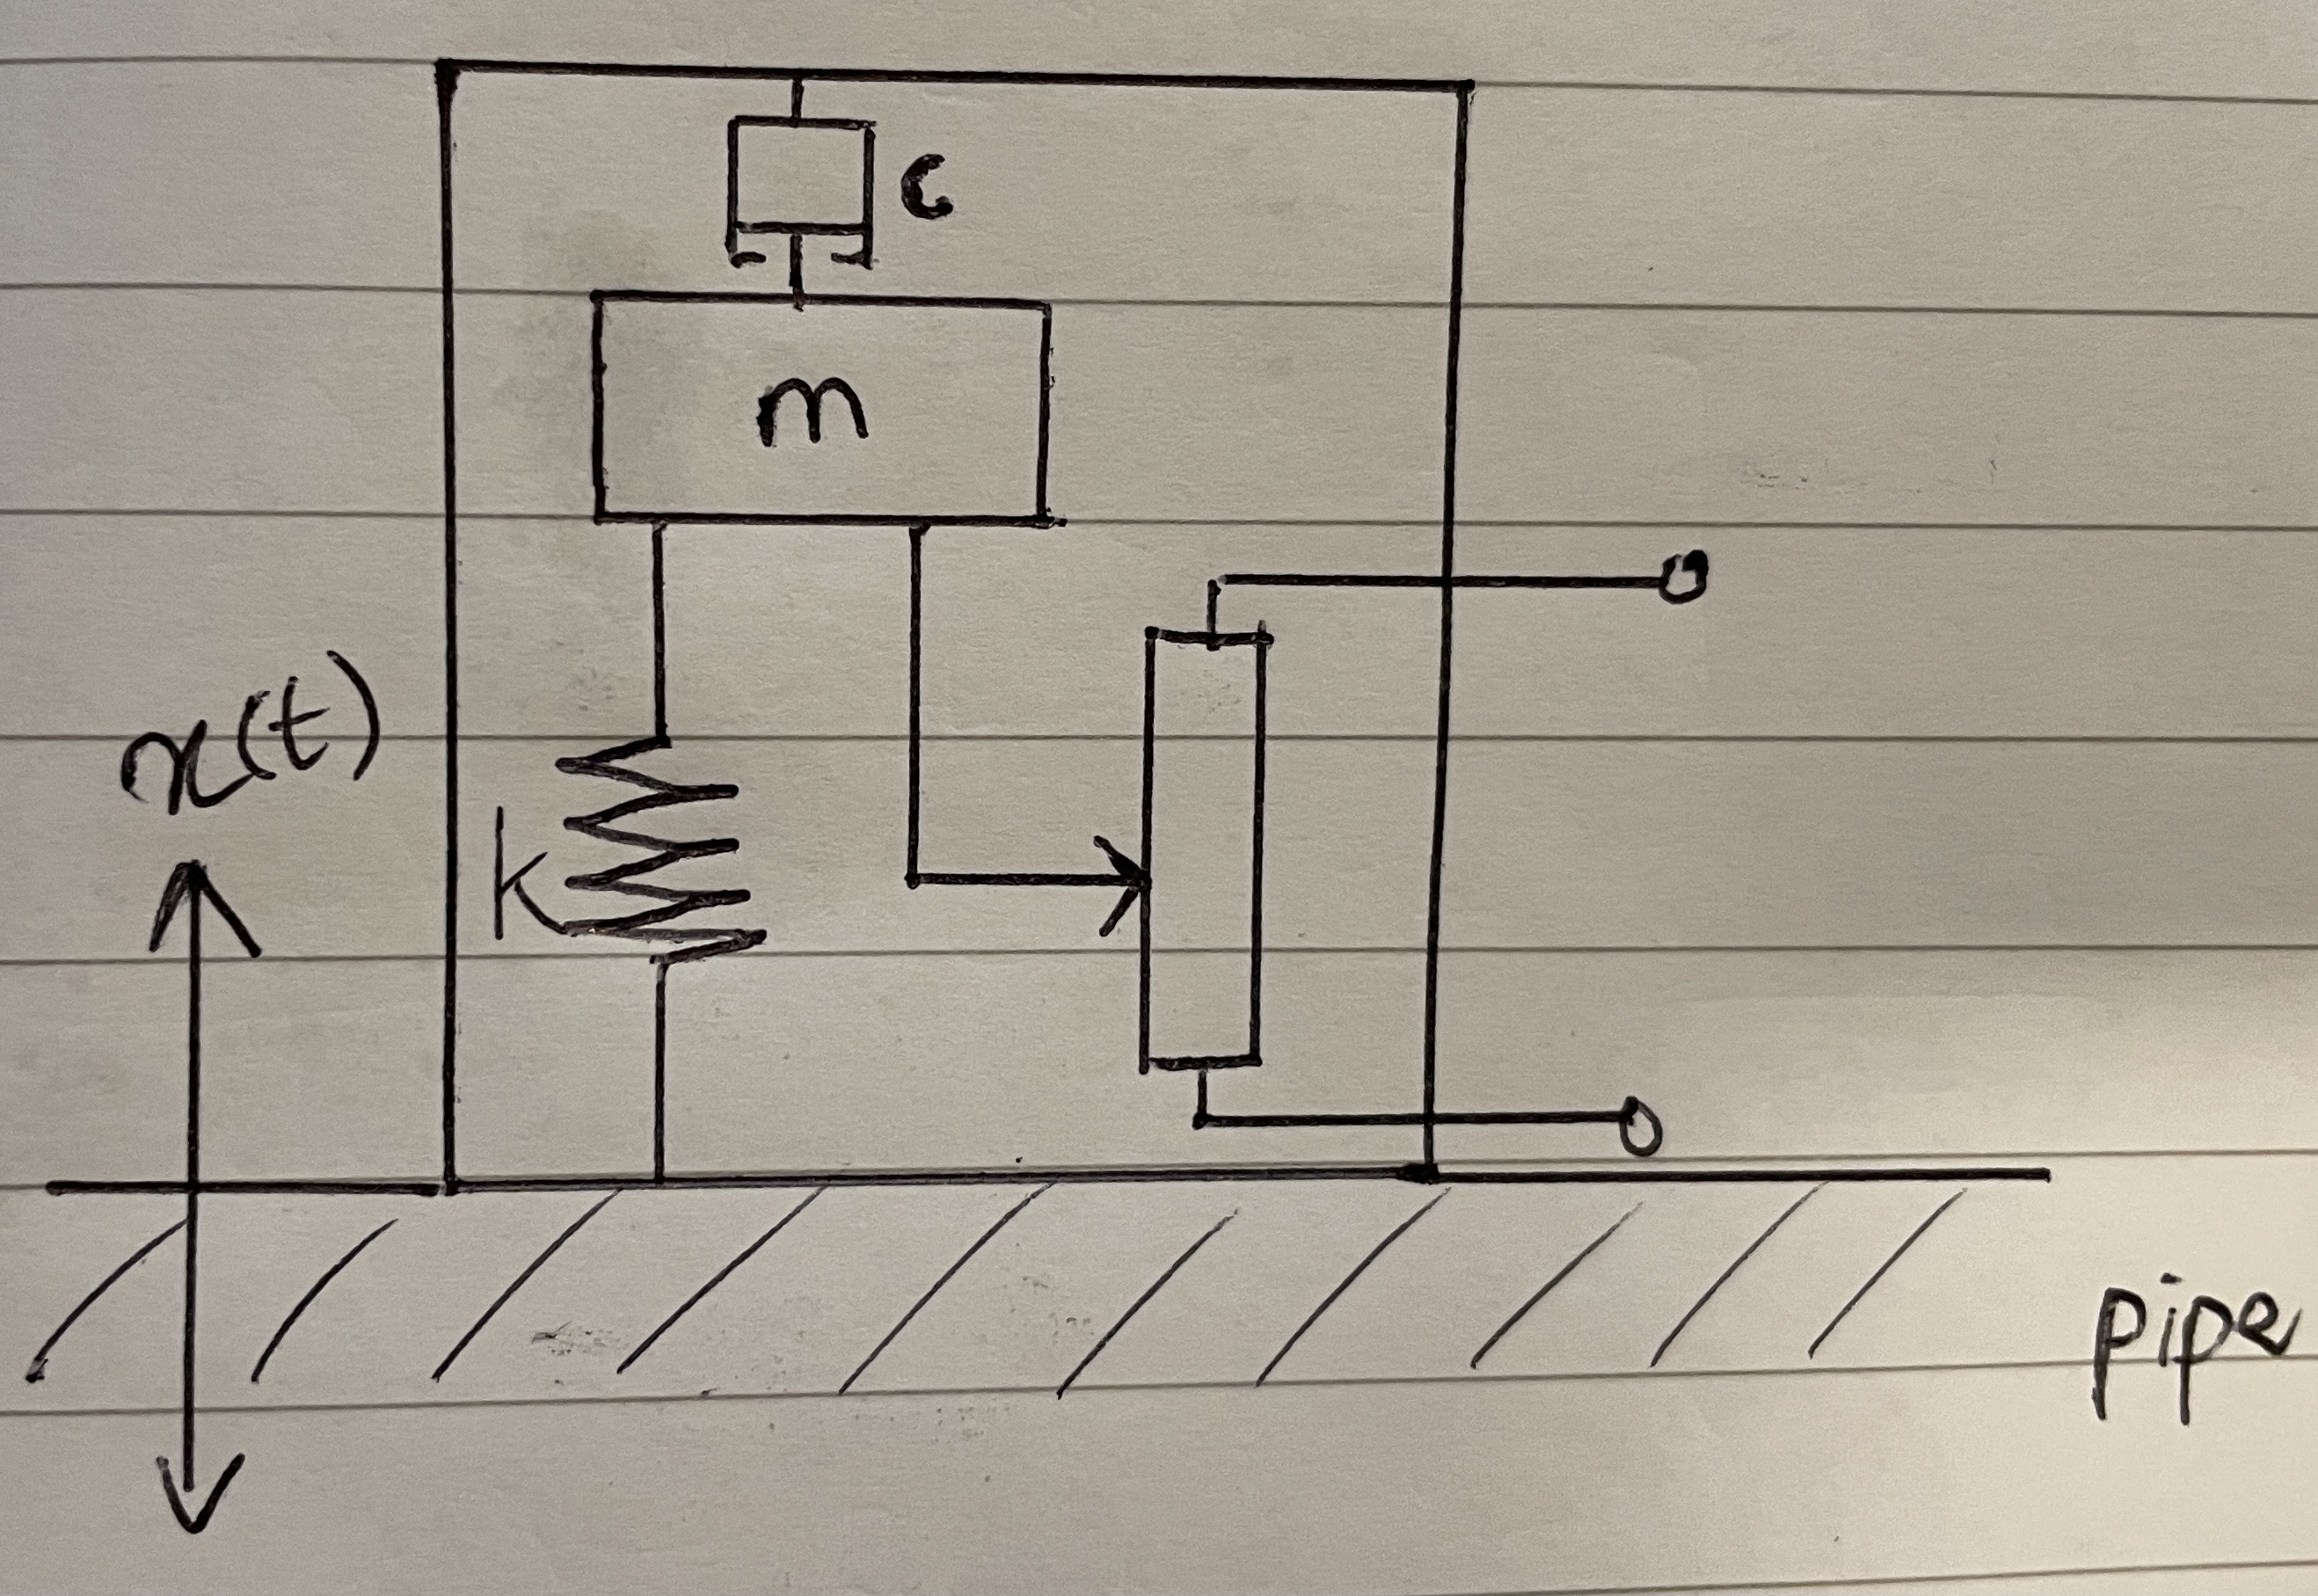 c
m
x(t)
k
pipe